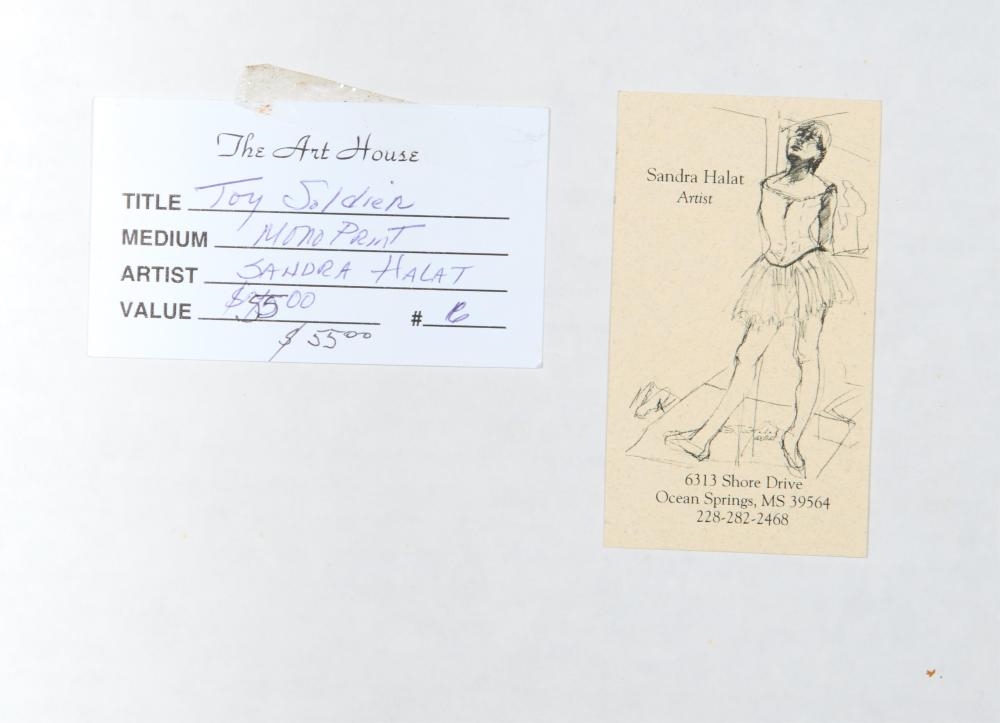 The Art House
TITLE Toy Soldier
MEDIUM MONO PRINT
ARTIST SANDRA HALAT
VALUE $55.00 # 6
$ 55.00
Sandra Halat
Artist
6313 Shore Drive
Ocean Springs, MS 39564
228-282-2468